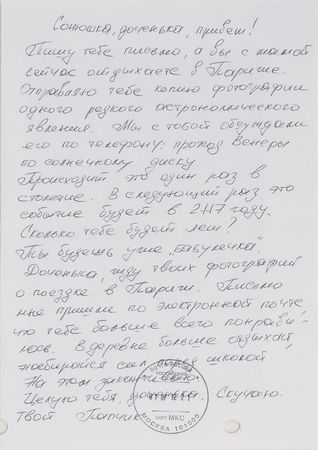 Сонюшка, доченька, привет!
Пишу тебе письмо, а вы с мамой
сейчас отдыхаете в Париже.
Отправляю тебе копию фотографии
одного редкого астрономического
явления. Мы с тобой обсуждали
его по телефону: проход Венеры
по солнечному диску
Происходит это один раз в
столетие. В следующий раз это
событие будет в 2117 году.
Сколько тебе будет лет?
Ты будешь уже "бабулечка".
Доченька, жду твоих фотографий
о поездке в Париж. Письмо
мне пришли по электронной почте,
что тебе больше всего понрави-
лось. В деревне больше отдыхай,
набирайся сил перед школой.
На этом заканчиваю.
Целую тебя, доченька. Скучаю.
Твой Папчик.
БОРТ МКС
МОСКВА 101000